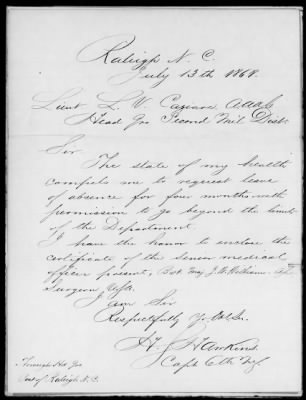 Raleigh N. C.
July 13th 1868.
Lieut L. V. Caziarc A.A.A.G.
Head Qrs Second Mil Dist.
Sir
The state of my health
compels me to request leave
of absence for four months with
permission to go beyond the limits
of the Department
I have the honor to enclose the
certificate of the senior medical
officer present, Bvt Maj J. W. Williams Asst
Surgeon USA.
I am Sir
Respectfully
H. S. Hawkins
Capt 6th Inf.
Through Hd Qrs
Post of Raleigh N. C.